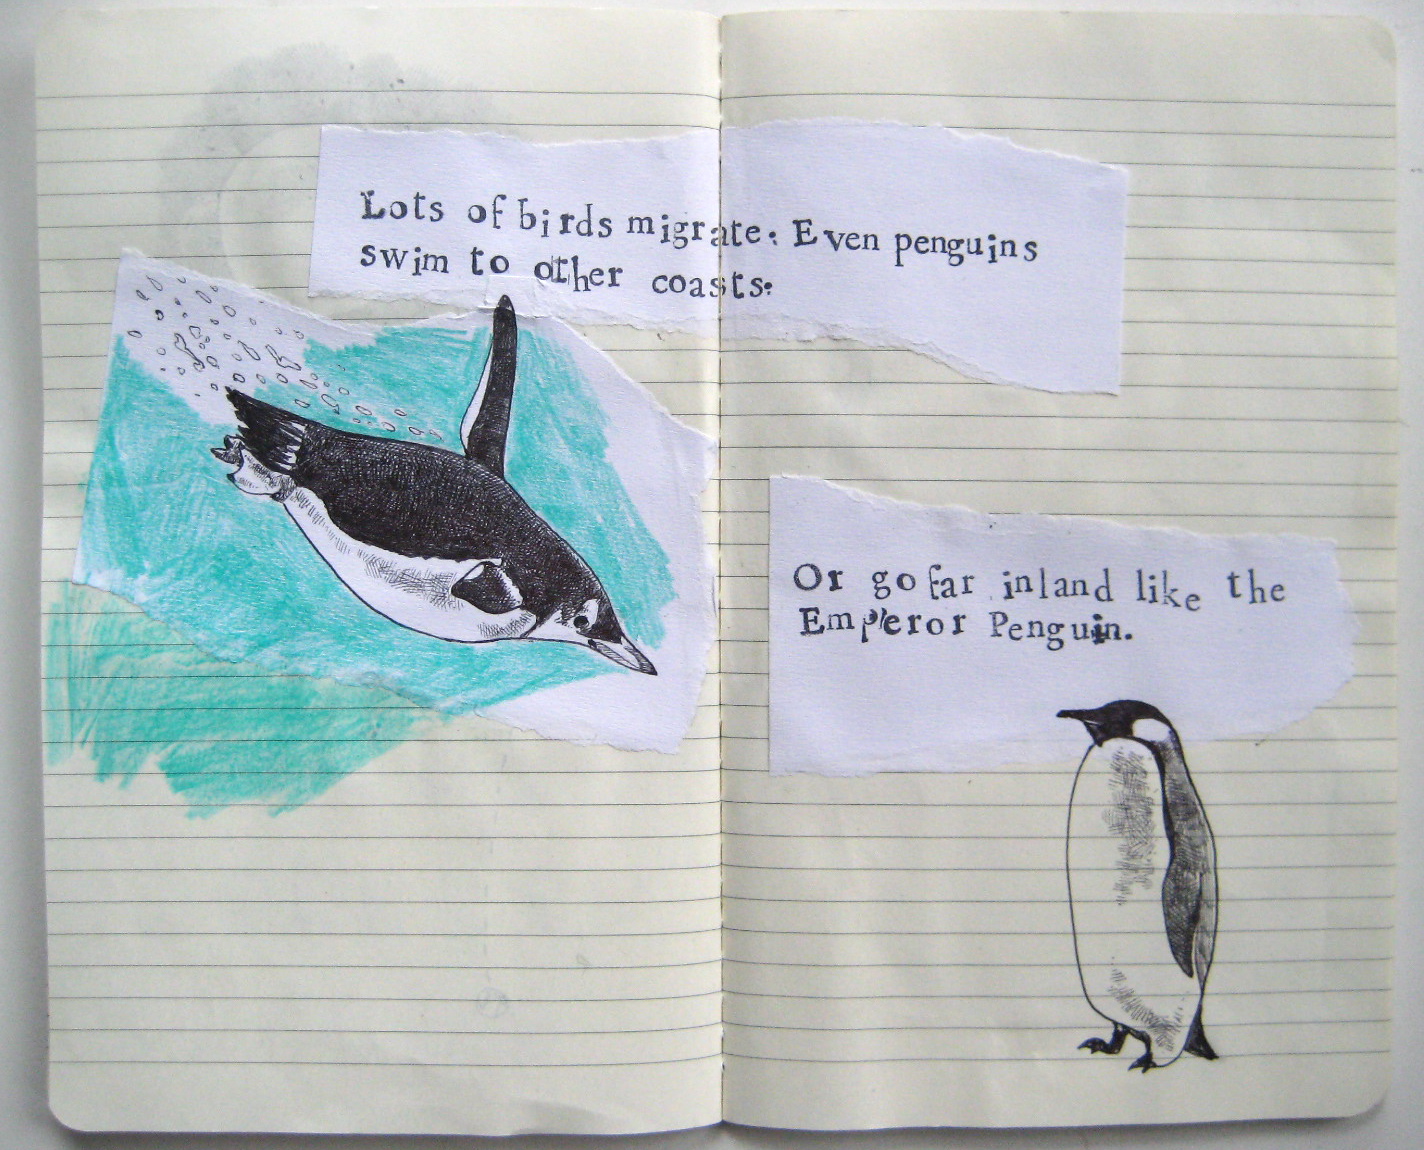 Lots of birds migrate. Even penguins
swim to other coasts.
Or go far inland like the
Emperor Penguin.